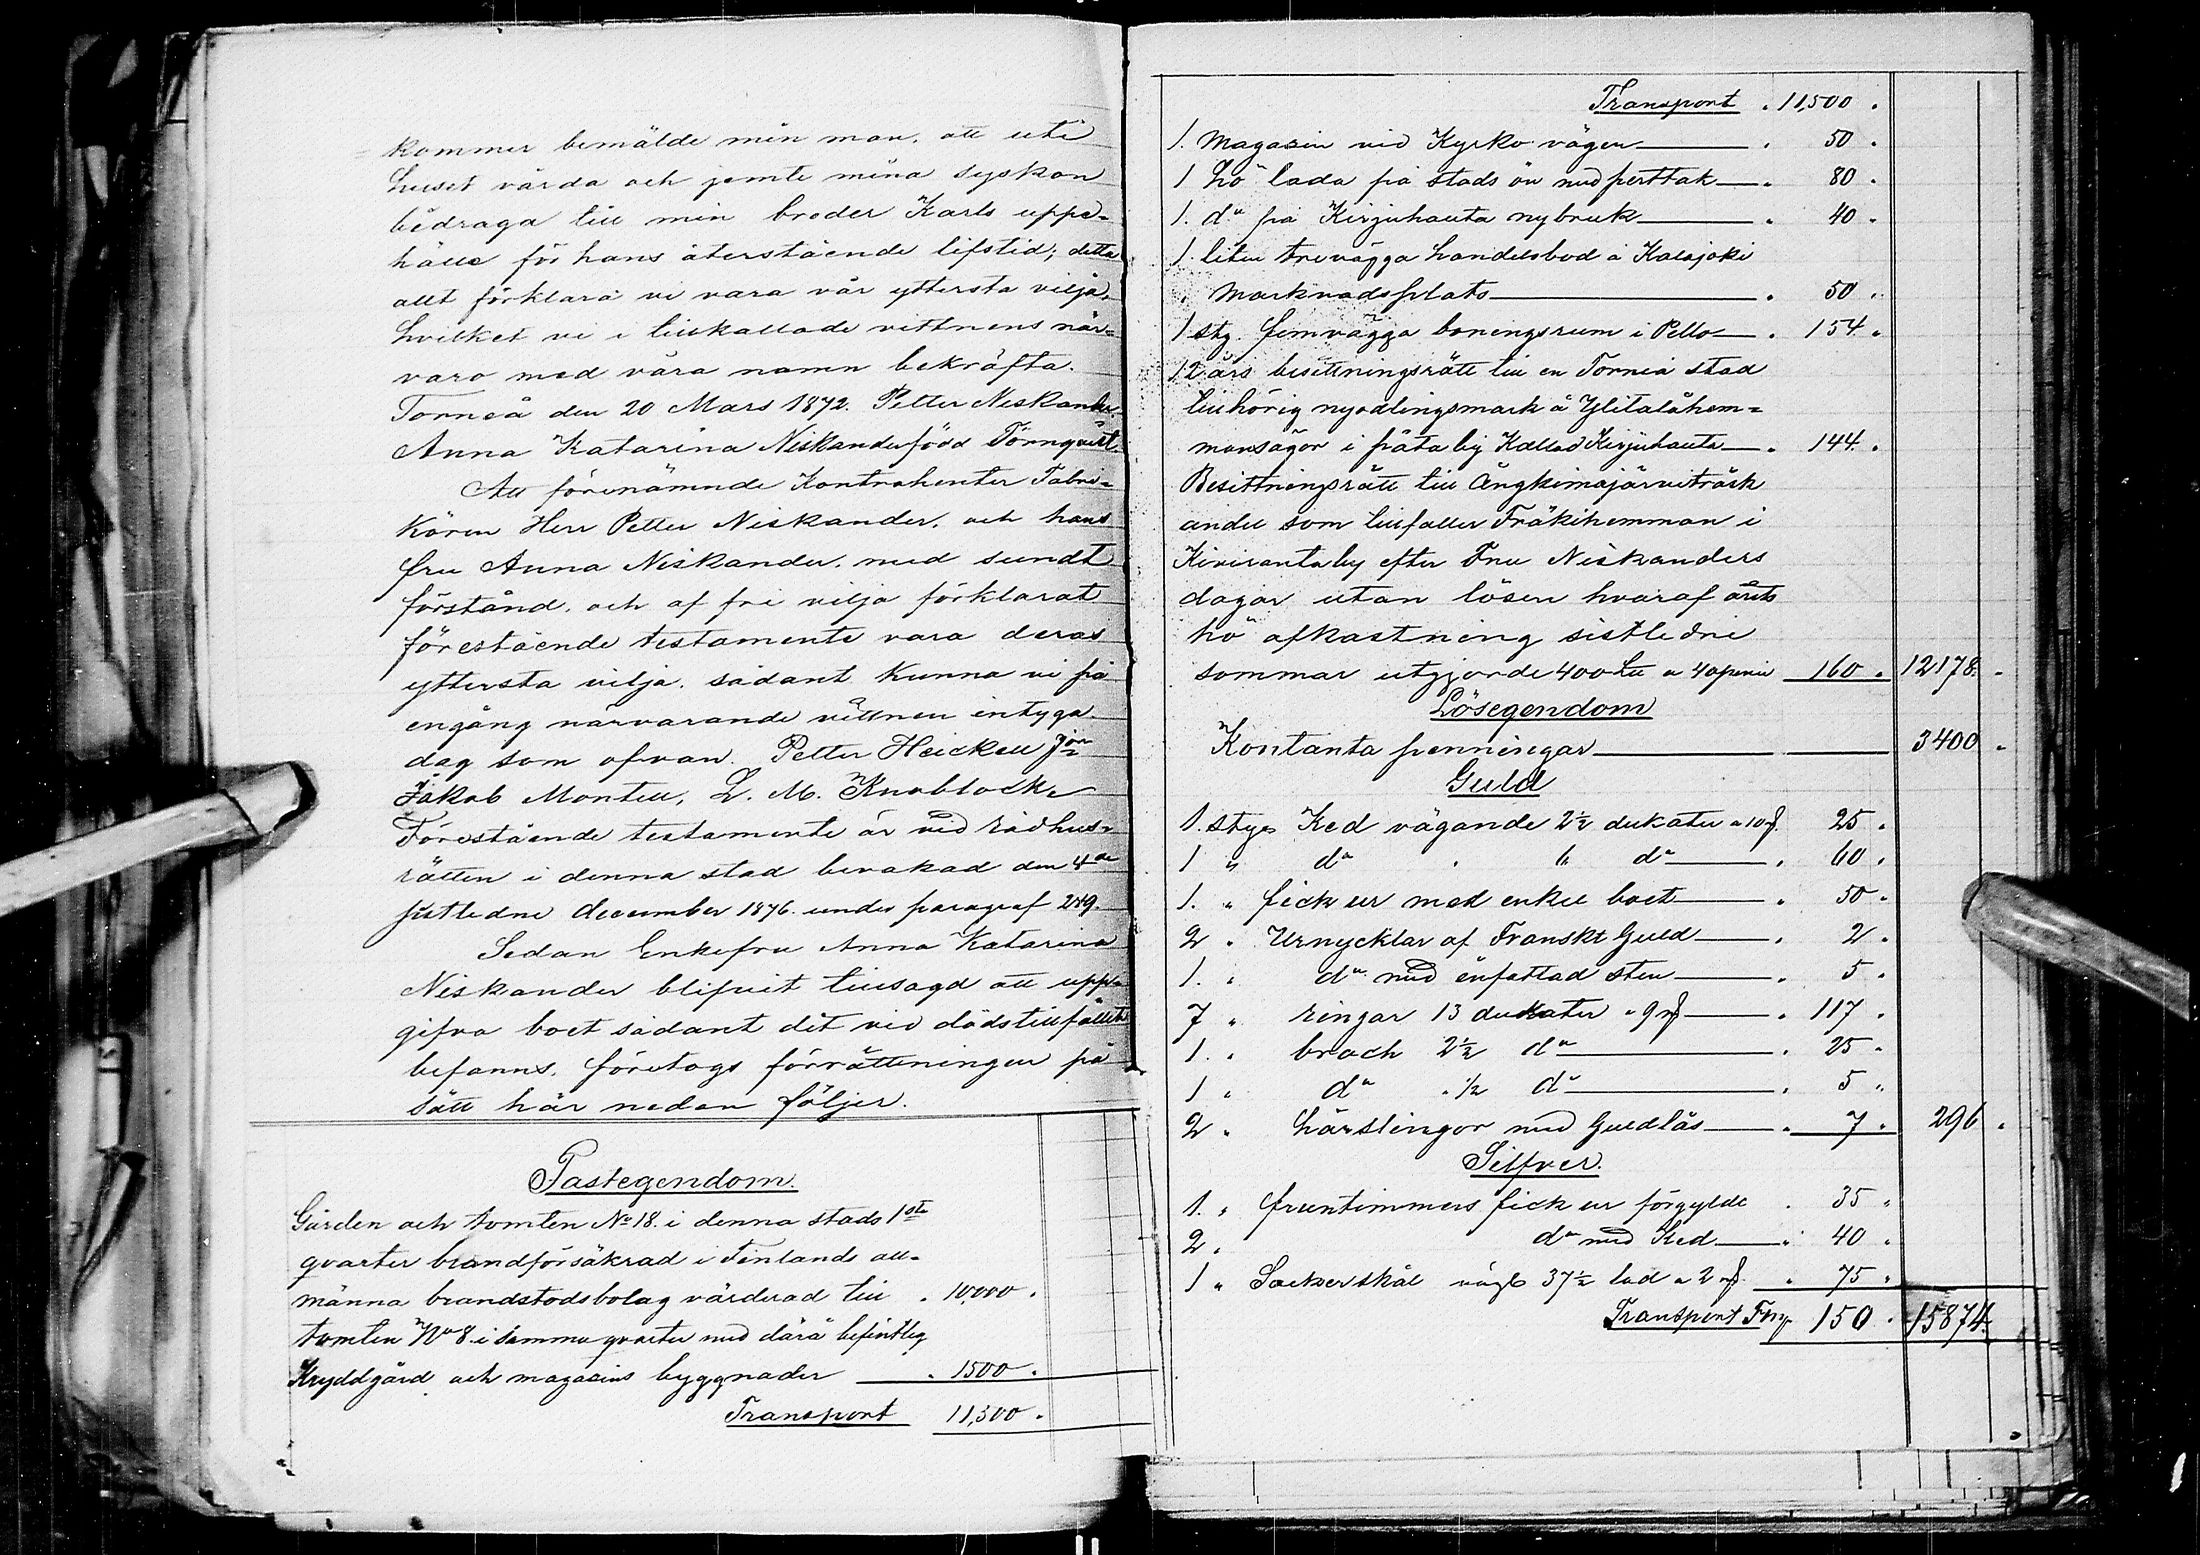 kommer bemälde min man, att uti
huset vårda och jemte mina syskon
bidraga till min broder Karls uppe-
hälle för hans återstående lifstid; detta
allt förklara vi vara vår yttersta vilja,
hvilket vi i tillkallade vittnens när-
varo med våra namn bekräfta.
Torneå den 20 Mars 1872. Petter Niskander.
Anna Katarina Niskander född Törnqvist.
Att förenämnde Kontrahenter Fabri-
kören Herr Petter Niskander, och hans
fru Anna Niskander, med sundt
förstånd, och af fri vilja förklarat
förestående testamente vara deras
yttersta vilja, sådant kunna vi på
engång närvarande vittnen intyga.
dag som ofvan. Petter Heickell Jon
Jakob Montell, L. M. Knoblock.
Förestående testamente är vid rådhus-
rätten i denna stad bevakad den 4de
sistledne december 1876. under paragraf 249.
Sedan Enkefru Anna Katarina
Niskander blifvit tillsagd att upp-
gifva boet sådant det vid dödstillfället
befanns, företogs förrättningen på
sätt här nedan följer.
Fastegendom.
Gården och tomten No 18. i denna stads 1sta
qvarter brandförsäkrad i Finlands all-
männa brandstodsbolag värderad till " 10,000 "
tomten No 8. i samma qvarter med därå befintlig
Kryddgård och magasins byggnader " 1500 "
Transport 11,500 "
Transport " 11,500 "
1. Magasin vid Kyrko vägen " 50 "
1 hö lada på stads ön med perttak " 80 "
1. do på Kirjuhauta nybruk " 40 "
1. liten trevägga handelsbod å Kalajoki
" Marknadsplats " 50 "
1 stg. femvägga boningsrum i Pello " 154 "
12 års besittningsrätt till en Torneå stad
tillhörig nyodlingsmark å Ylitalåhem-
mansägor i påta by Kallad Kirjuhauta " 144 "
Besittningsrätt till Ängkimajärviträsk
andel som tillfaller Fräkihemman i
Kiviranta by efter Fru Niskanders
dagar utan lösen hvaraf årets
hö afkastning sistledne
sommar utgjorde 400 Lu a 40 penni 160 " 12178 "
Lösegendom
Kontanta penningar 3400 "
Guld
1. styc Ked vägande 2½ dukater a 10 mf. 25 "
1 " do " 6 do " 60 "
1. " fick ur med enkel boet " 50 "
2 " Urnycklar af Franskt Guld " 2 "
1. " do med enfattad sten " 5 "
7 " ringar 13 dukater a 9 mf " 117 "
1. " broch 2½ do " 25 "
1 " do " ½ do " 5 "
2 " hårslingor med Guldlås " 7 " 296 "
Silfver.
1. " fruntimmers fick ur förgylde " 35 "
2. do med Ked " 40 "
1 " Sockerskål vägt 37½ lod a 2 mf. " 75 "
Transport Fmg 150 " 15874 "